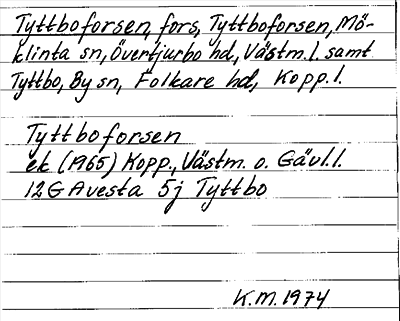 Tyttboforsen, fors, Tyttboforsen, Mö-
klinta sn, Övertjurbo hd, Västm. l. samt
Tyttbo, By sn, Folkare hd, Kopp. l.
Tyttboforsen
ek (1965) Kopp., Västm. o. Gävl. l.
12G Avesta 5j Tyttbo
K.M. 1974